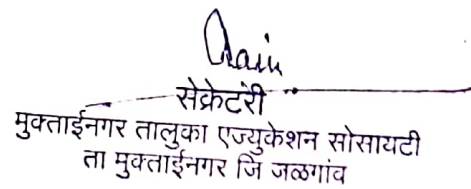 सेक्रेटरी
मुक्ताईनगर तालुका एज्युकेशन सोसायटी
ता मुक्ताईनगर जि जळगांव